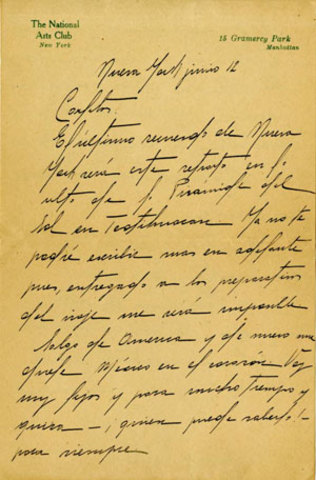 The National
Arts Club
New York
15 Gramercy Park
Manhattan
Nueva York junio 12
Carlitos:
El ultimo recuerdo de Nueva
York será este retrato en lo
alto de la Piramide del
Sol en Teotihuacan. Ya no te
podré escribir mas en adelante
pues, entregado a los preparativos
del viaje me será imposible
Salgo de America y de nuevo me
duele Mexico en el corazón. Voy
muy lejos y para mucho tiempo y
quiza — ¡quien puede saberlo! —
para siempre